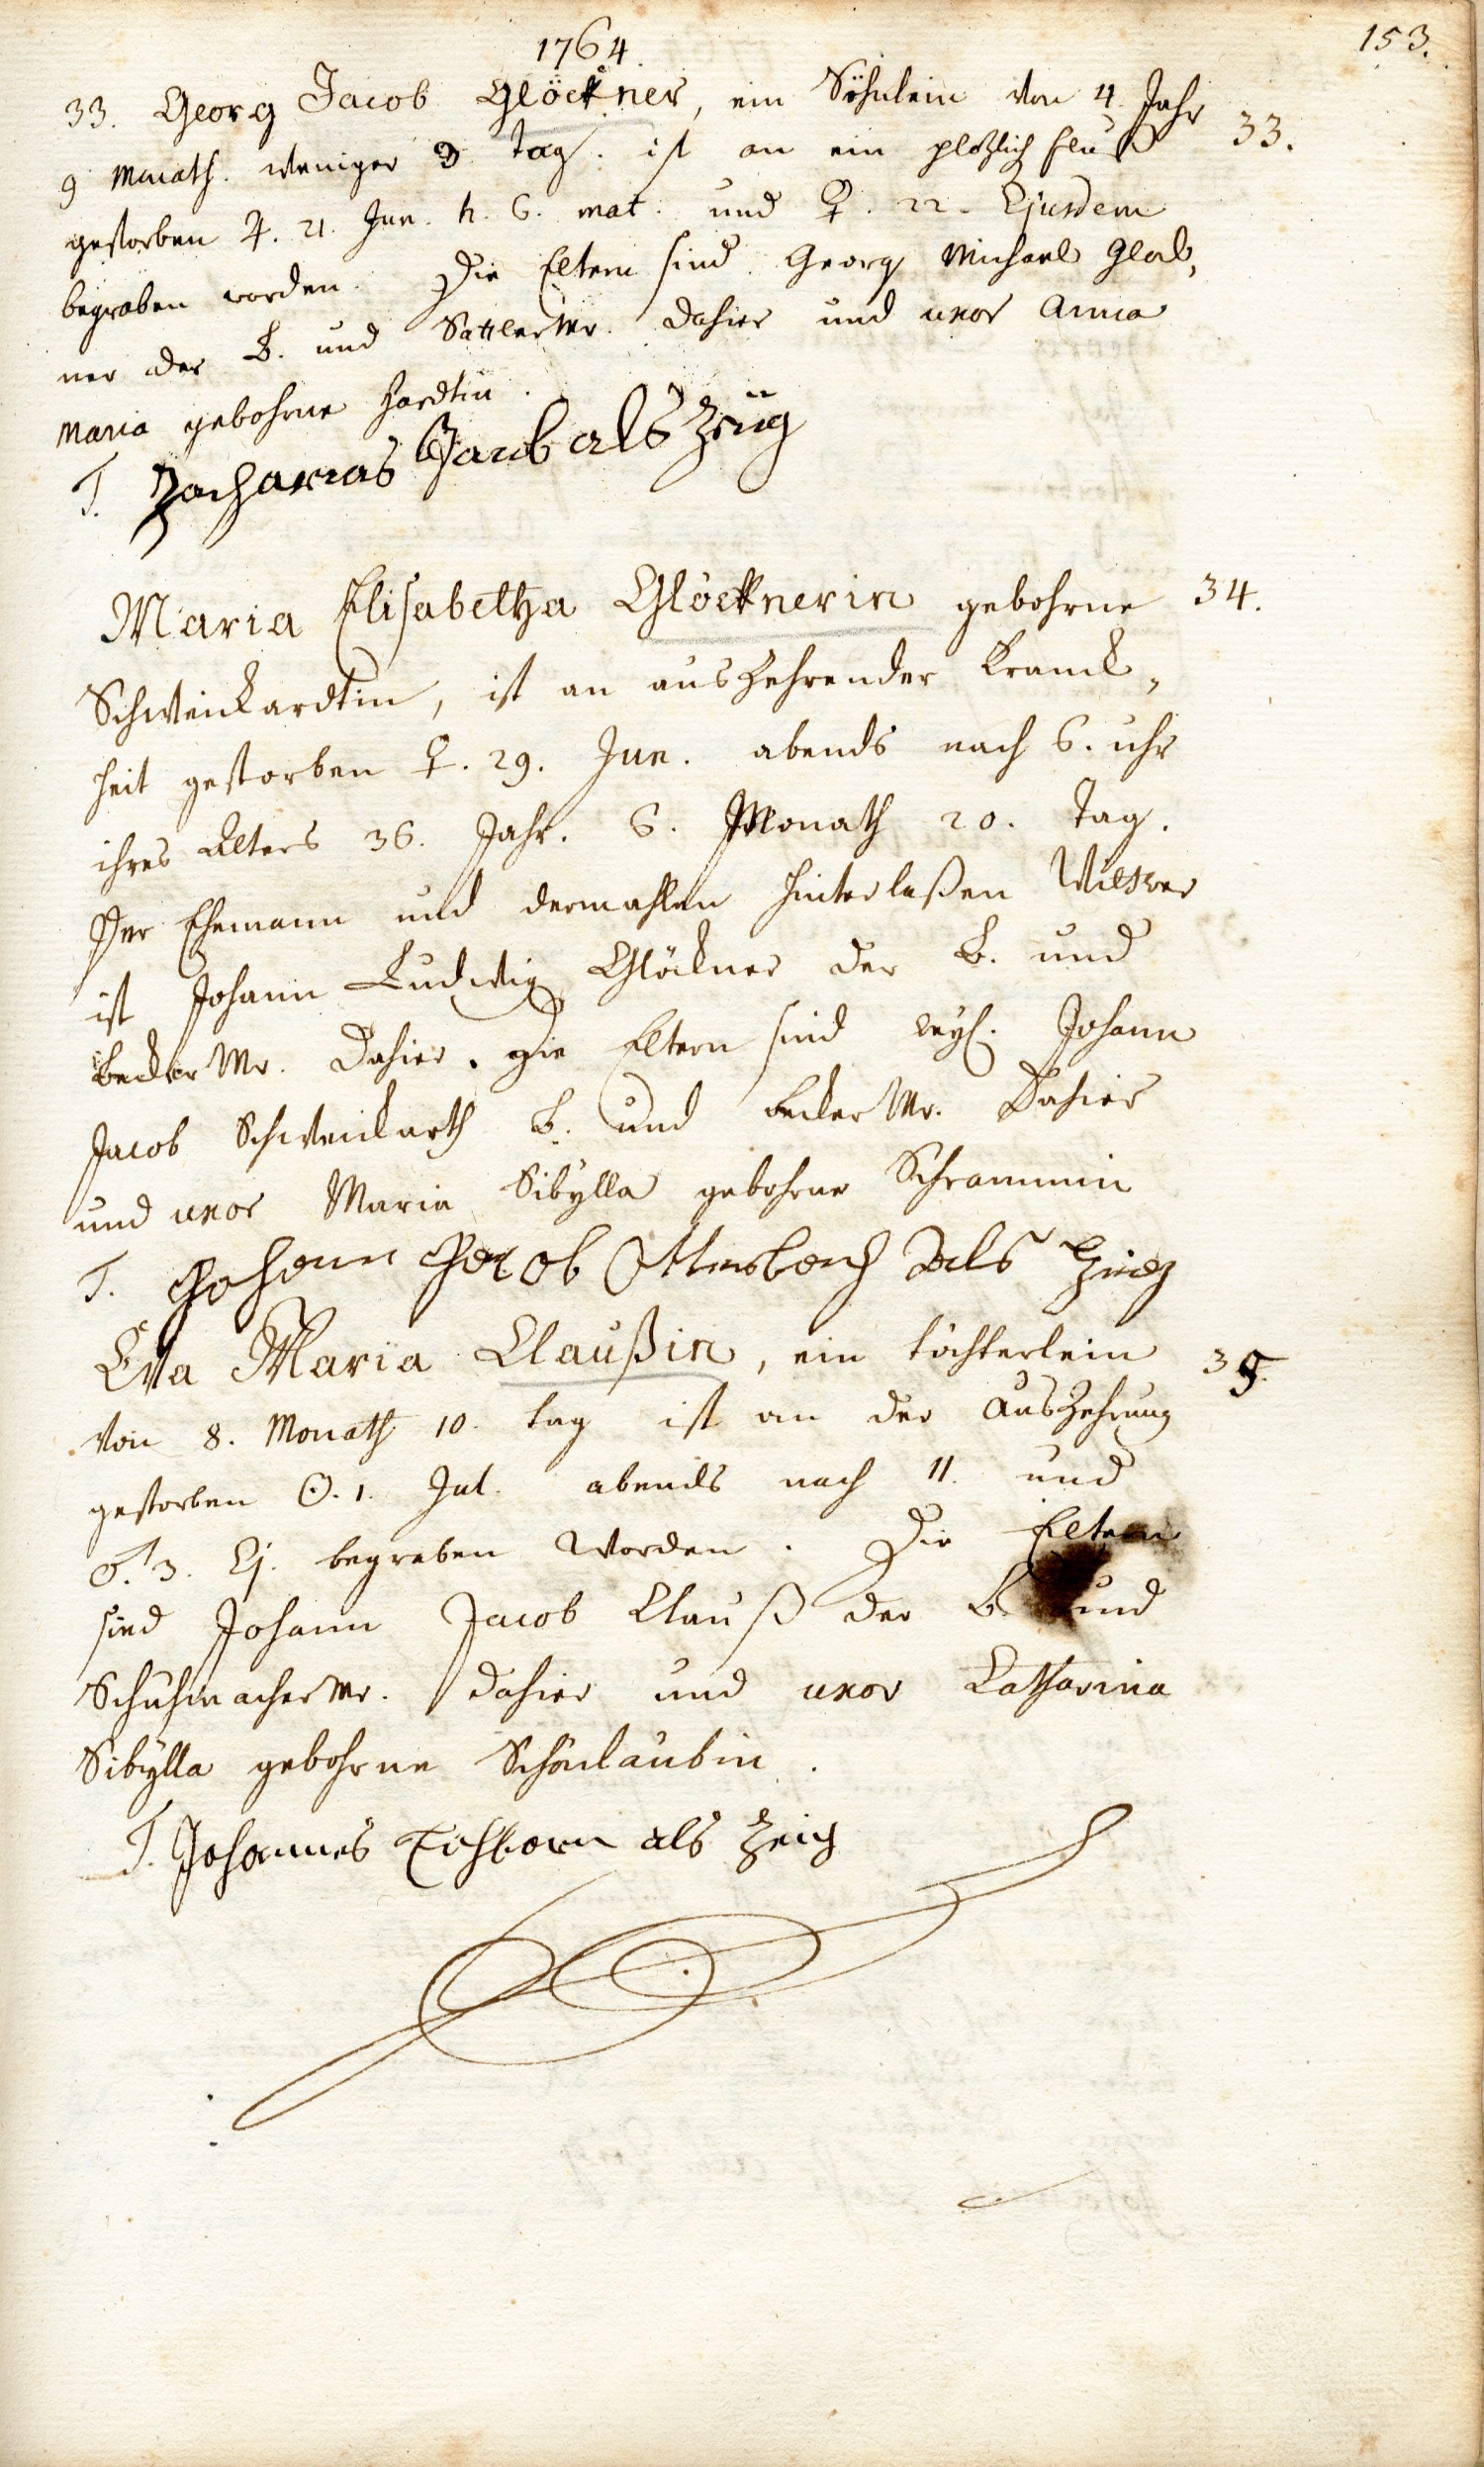 1764.
153.
33. Georg Jacob Glöckner, ein Söhnlein von 4. Jahr
33.
9 Monath. weniger 3 Tag. ist an ein plötzlich fluß
gestorben ♃. 21. Jun. h. 6. mat. und ♀. 22. Ejusdem
begraben worden. Die Eltern sind Georg Michael Glöck,
ner der B. und SattlerMr. dahier und uxor Anna
Maria gebohrne Hardtin.
T. Zacharias Jacob als Zeüg
Maria Elisabetha Glöcknerin gebohrne
34.
Schweickardtin, ist an auszehrender Kranck,
heit gestorben ♀. 29. Jun. abends nach 6. uhr
ihres Alters 36. Jahr. 6. Monath 20. Tag.
Der Ehemann und dermahlen hinterlaßen Wittwer
ist Johann Ludwig Glöckner der B. und
beckerMr. dahier. Die Eltern sind weyl. Johann
Jacob Schweickarth B. und beckerMr. dahier
und uxor Maria Sibÿlla gebohrne Schrammin
T. Johann Jacob als Zeug
Eva Maria Claußin, ein töchterlein
35.
von 8. Monath 10. tag ist an der Auszehrung
gestorben ☉. 1. Jul. abends nach 11. und
♂. 3. Ej. begraben worden. Die Eltern
sind Johann Jacob Clauß der B. und
SchuhmacherMr. dahier und uxor Catharina
Sibÿlla gebohrne Schönlaubin.
T. Johannes Eichborn als Zeug